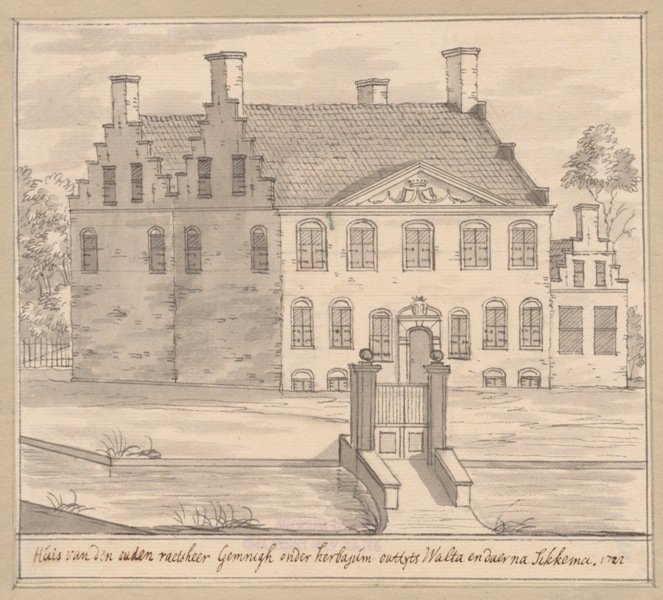 Huis van den ouden raetsheer Gemnigh onder herbajum outtyts Walta en daerna Sikkema. 1722